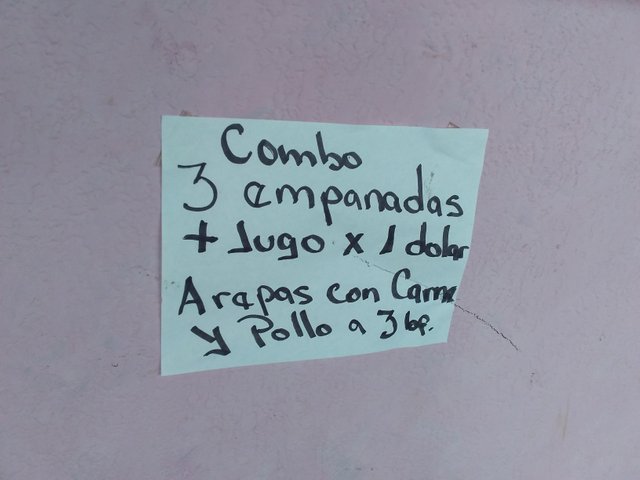 Combo
3 empanadas
+ Jugo x 1 dolar
Arepas con Carne
y Pollo a 3